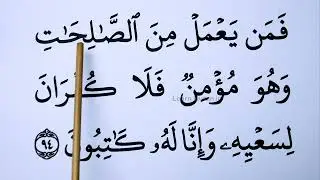 فَمَن يَعْمَلْ مِنَ ٱلصَّـٰلِحَـٰتِ
وَهُوَ مُؤْمِنٌ فَلَا كُفْرَانَ
لِسَعْيِهِۦ وَإِنَّا لَهُۥ كَـٰتِبُونَ ٩٤